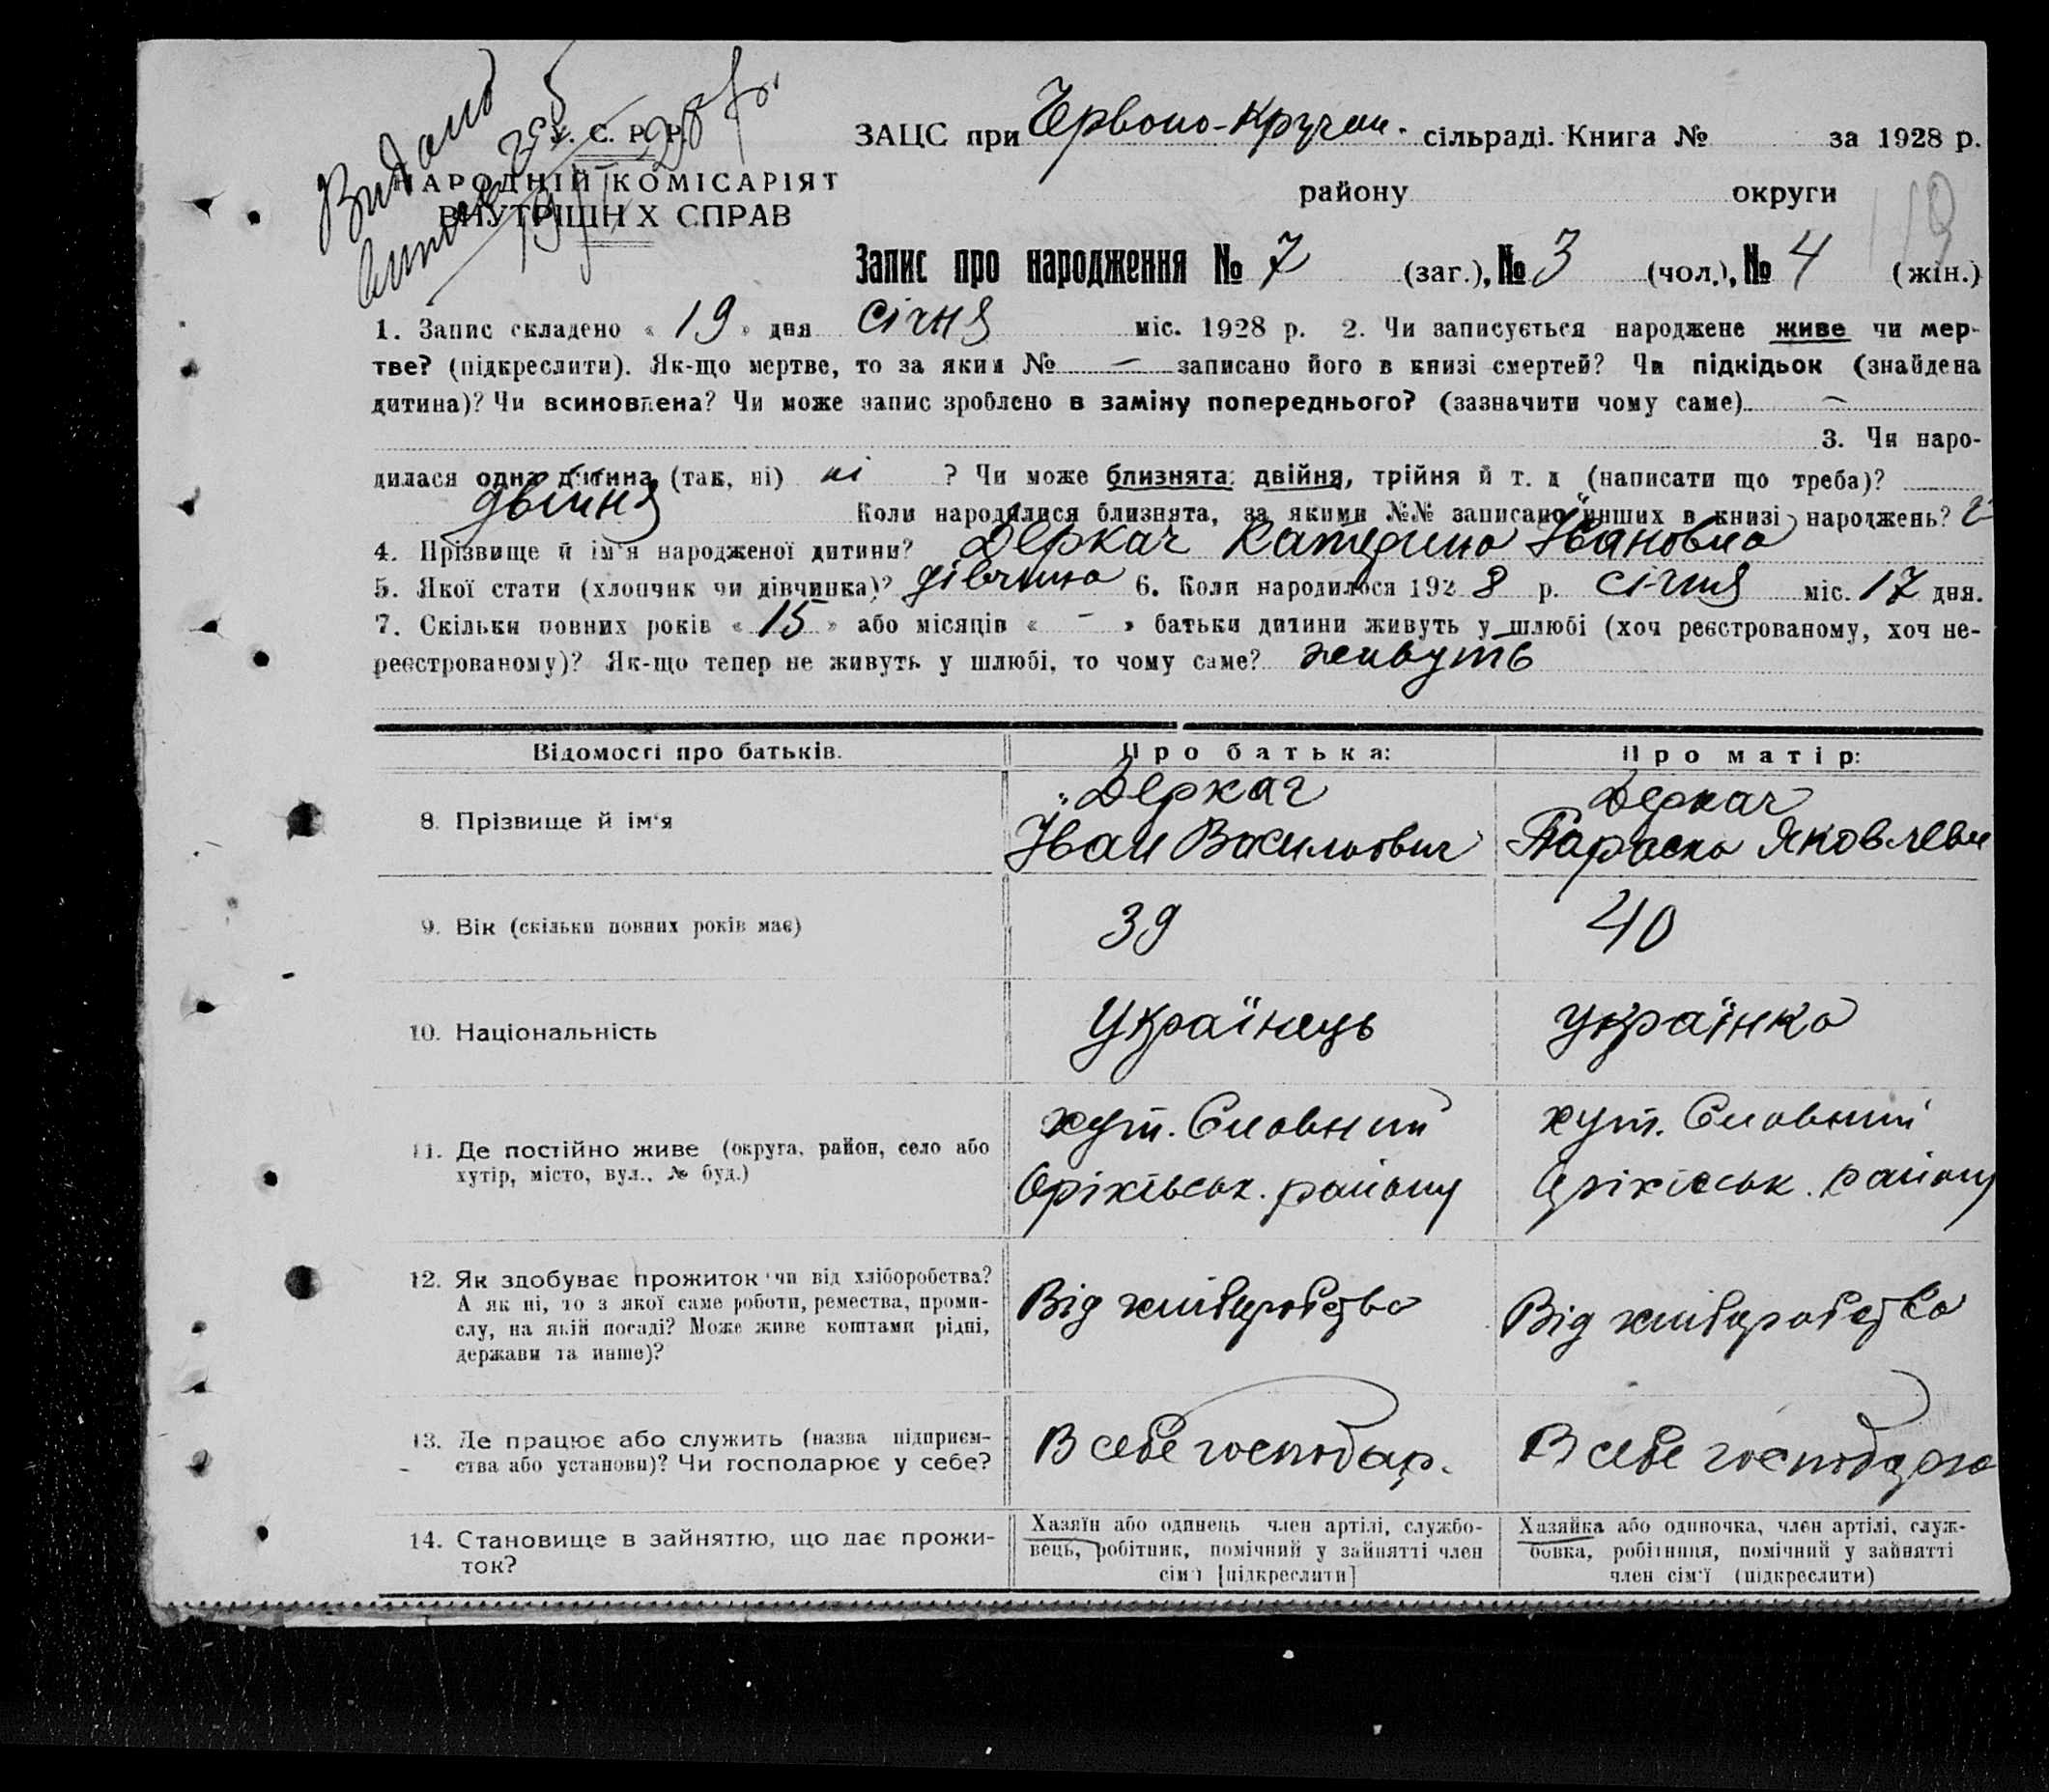 Видано
У. С. Р. Р.
НАРОДНІЙ КОМІСАРІЯТ
ВНУТРІШНІХ СПРАВ
ЗАЦС при Червоно-Кручан. сільраді. Книга № за 1928 р.
району округи
119
Запис про народження № 7 (заг.), № 3 (чол.), № 4 (жін.)
1. Запис складено « 19 » дня Січня міс. 1928 р. 2. Чи записується народжене живе чи мер-
тве? (підкреслити). Як-що мертве, то за яким № — записано його в книзі смертей? Чи підкідьок (знайдена
дитина)? Чи всиновлена? Чи може запис зроблено в заміну попереднього? (зазначити чому саме) —
3. Чи наро-
дилася одна дитина (так, ні) ні ? Чи може близнята: двійня, трійня й т. д (написати що треба)?
двійня Коли народилися близнята, за якими №№ записано инших в книзі народжень?
4. Прізвище й ім'я народженої дитини? Деркач Катерина Івановна
5. Якої стати (хлопчик чи дівчинка)? дівчина 6. Коли народилося 1928 р. січня міс. 17 дня.
7. Скільки повних років « 15 » або місяців « - » батьки дитини живуть у шлюбі (хоч реєстрованому, хоч не-
реєстрованому)? Як-що тепер не живуть у шлюбі, то чому саме? живуть
Відомості про батьків. Про батька: Про матір:
8. Прізвище й ім'я
Деркач
Іван Васильович
Деркач
Параска Яковлевн
9. Вік (скільки повних років має) 39 40
10. Національність Українець Українка
11. Де постійно живе (округа, район, село або
хутір, місто, вул., № буд.)
хут. Словний
Оріхівськ. району
хут. Словний
Оріхівськ. району
12. Як здобуває прожиток чи від хліборобства?
А як ні, то з якої саме роботи, ремества, проми-
слу, на якій посаді? Може живе коштами рідні,
держави та инше)?
Від хліборобства
Від хліборобства
13. Де працює або служить (назва підприєм-
ства або установи)? Чи господарює у себе?
В себе господар.
В себе господарю
14. Становище в зайняттю, що дає прожи-
ток?
Хазяїн або одинець член артілі, службо-
вець, робітник, помічний у зайнятті член
сім'ї [підкреслити]
Хазяйка або одиночка, член артілі, служ-
бовка, робітниця, помічний у зайнятті
член сім'ї (підкреслити)